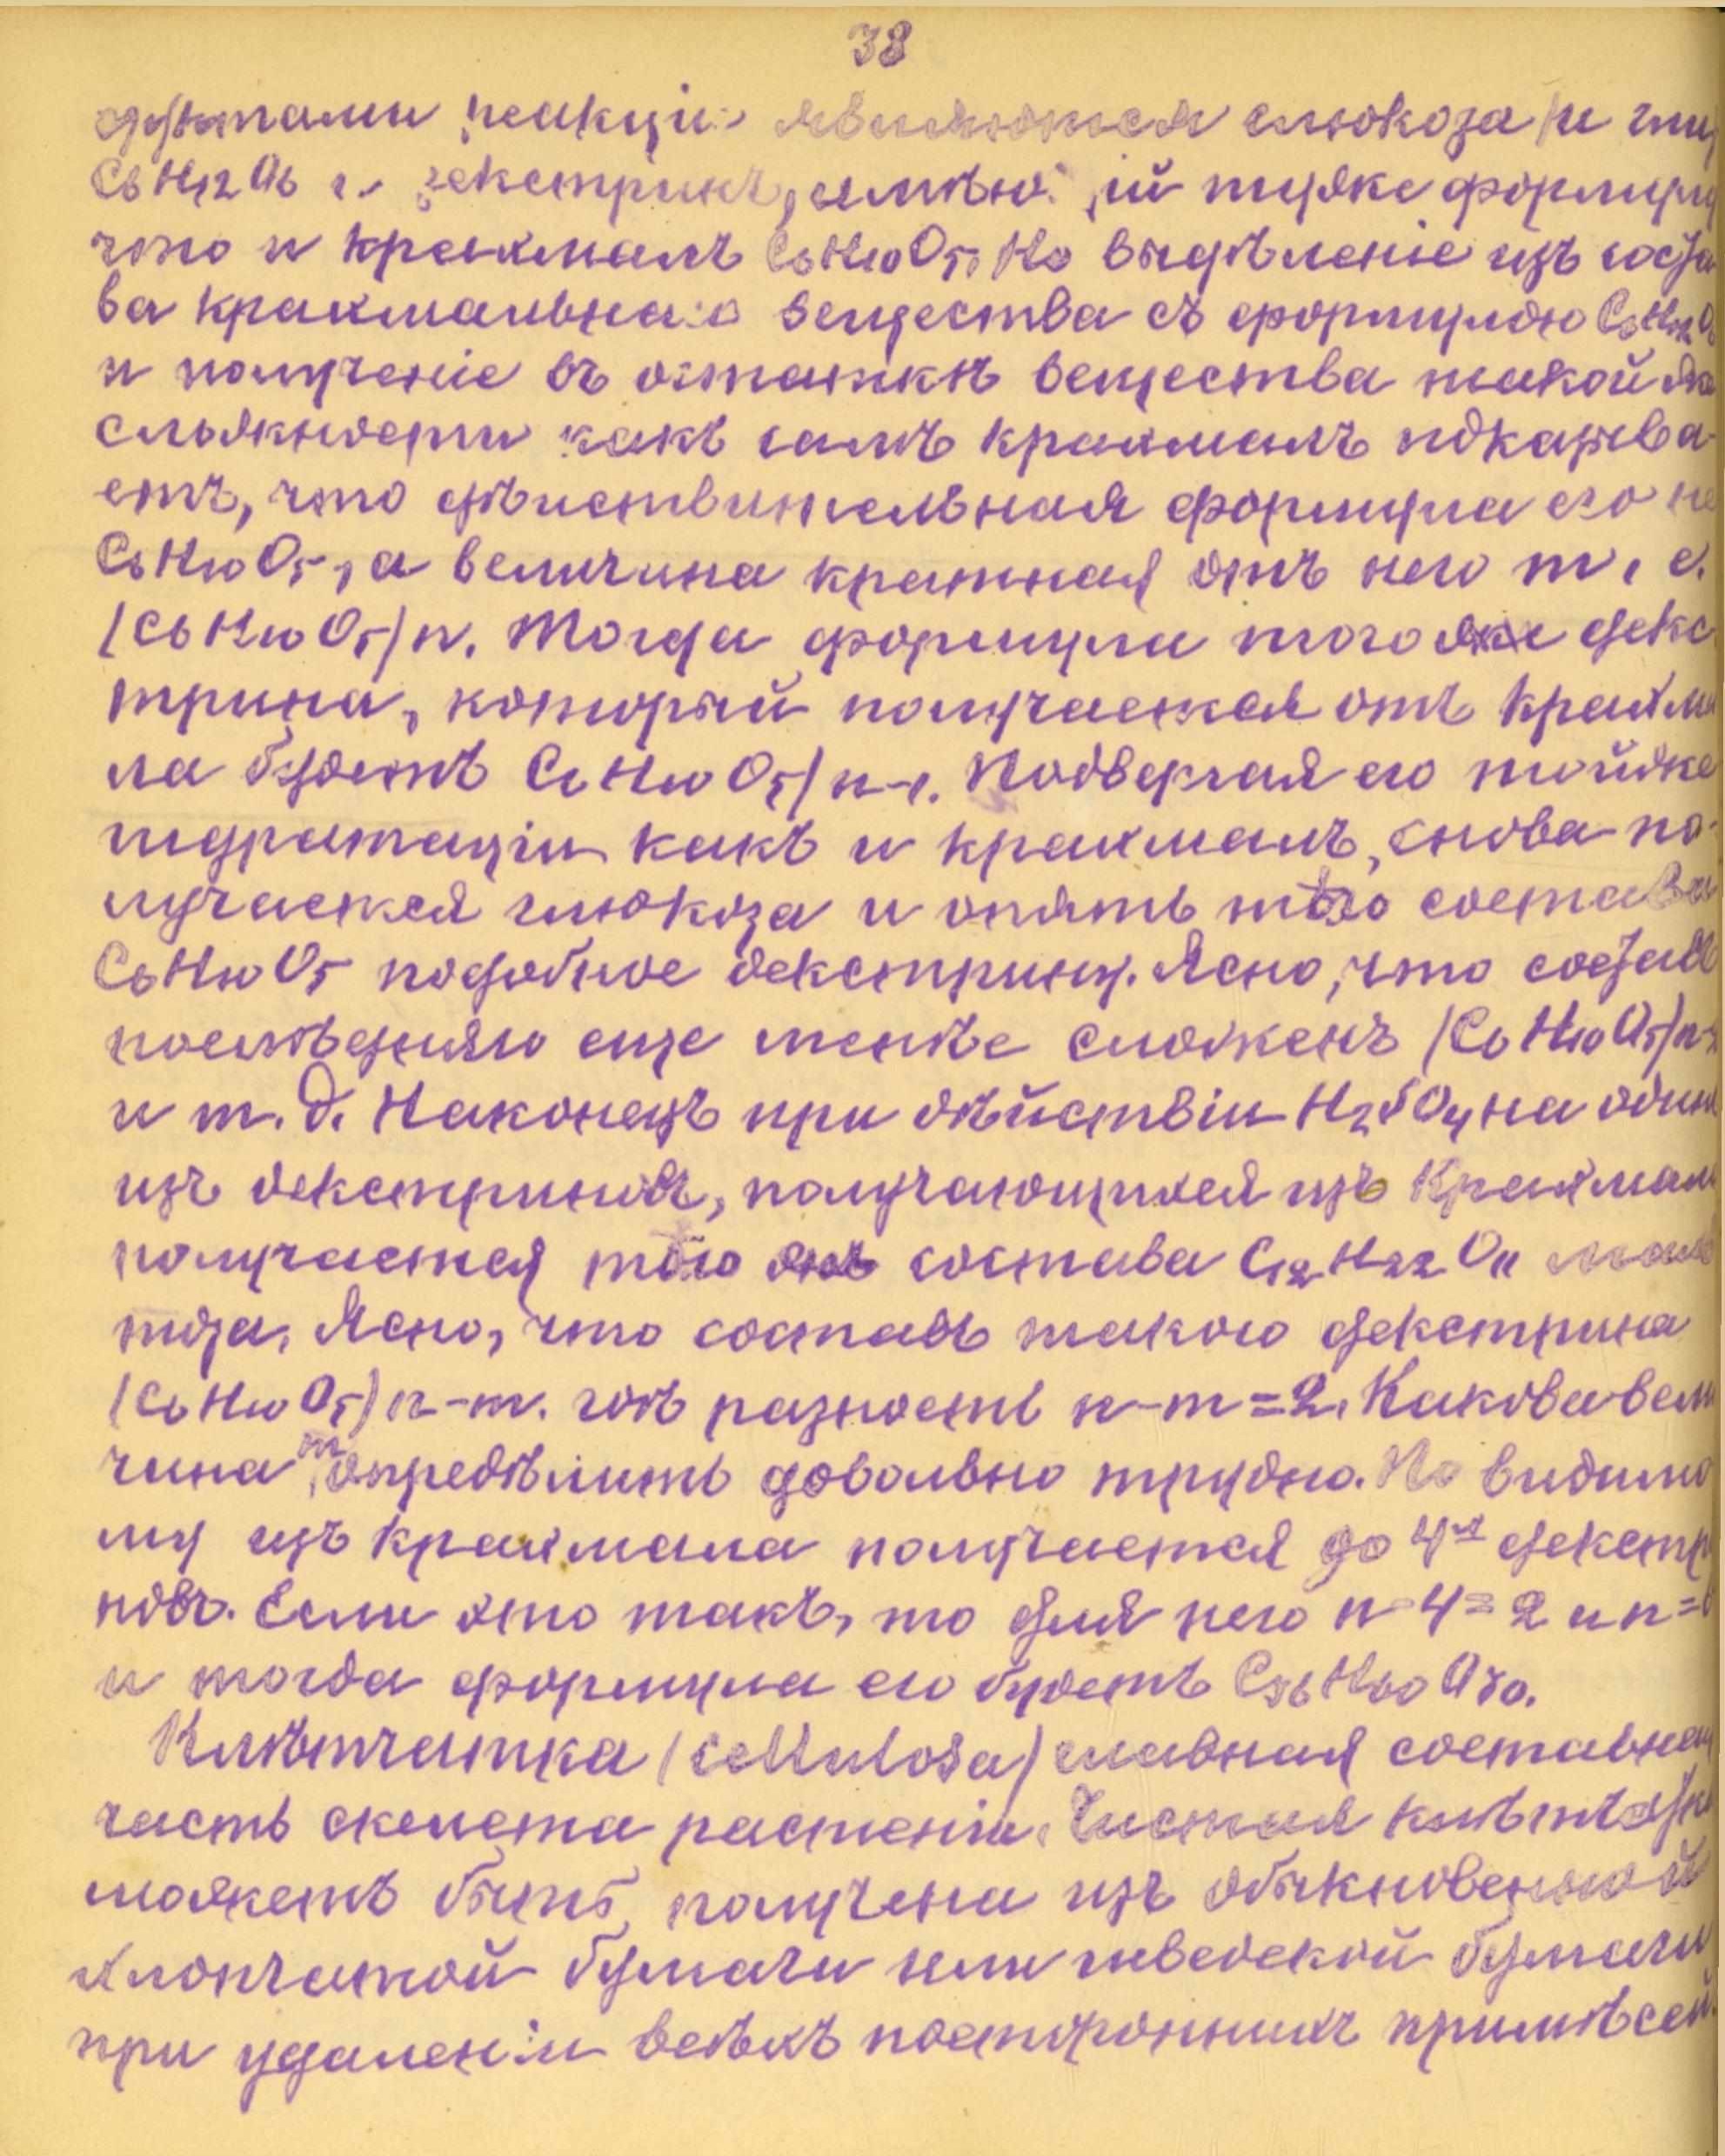 38
дуктами реакціи являются глюкоза
C6H12O6 и декстринъ, имѣющій туже формулу
что и крахмалъ C6H10O5. Но выдѣленіе изъ соста
ва крахмальнаго вещества съ формулою C6H12O6
и полученіе въ остаткѣ вещества такой же
сложности какъ самъ крахмалъ показыва-
етъ, что дѣйствительная формула его не
C6H10O5, а величина кратная отъ него т. е.
(C6H10O5)n. Тогда формула того же декс
трина, который получается отъ крахма
ла будетъ C6H10O5)n-1. Подвергая его тойже
гидратаціи какъ и крахмалъ, снова по-
лучается глюкоза и опять тѣло состава
C6H10O5 подобное декстрину. Ясно, что составъ
послѣдняго еще менѣе сложенъ (C6H10O5)n-2
и т. д. Наконецъ при дѣйствіи H2SO4 на одинъ
изъ декстриновъ, получающихся изъ крахмала
получается тѣло состава C12H22O11 маль
тоза. Ясно, что составъ такого декстрина
(C6H10O5)n-m. гдѣ разность n-m=2. Какова вели
чина m, опредѣлить довольно трудно. По видимо
му изъ крахмала получается до 4х декстри
новъ. Если это такъ, то для него n-4=2 и n=6
и тогда формула его будетъ C36H60O30.
Клѣтчатка (cellulosa) главная составная
часть скелета растеній. Чистая клѣтчатка
можетъ быть получена изъ обыкновенной
хлопчатой бумаги или шведской бумаги
при удаленіи всѣхъ постороннихъ примѣсей.